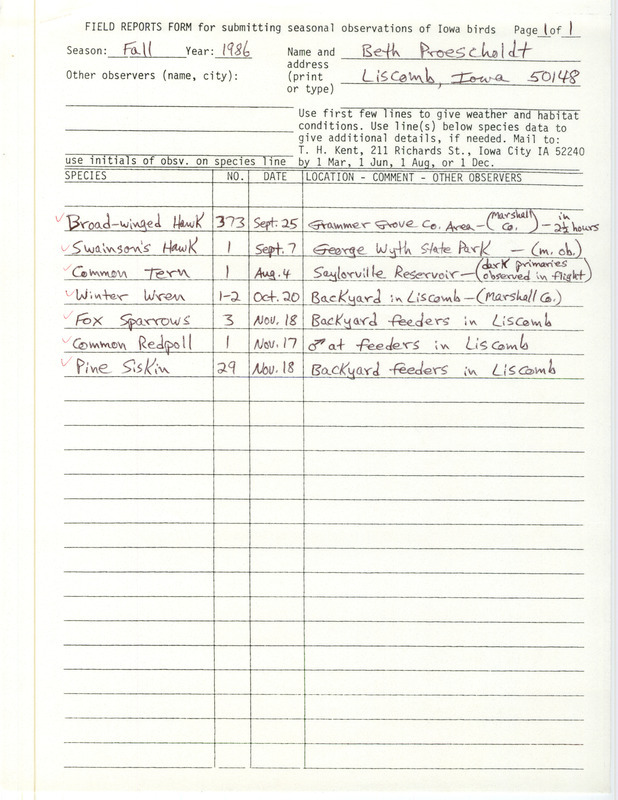 FIELD REPORTS FORM for submitting seasonal observations of Iowa birds Page 1 of 1
Season: Fall Year: 1986 Name and Beth Proescholdt
address
Other observers (name, city): (print Liscomb, Iowa 50148
or type)
Use first few lines to give weather and habitat
conditions. Use line(s) below species data to
give additional details, if needed. Mail to:
T. H. Kent, 211 Richards St., Iowa City IA 52240
use initials of obsv. on species line by 1 Mar, 1 Jun, 1 Aug, or 1 Dec.
SPECIES NO. DATE LOCATION - COMMENT - OTHER OBSERVERS
✓ Broad-winged Hawk 373 Sept. 25 Grammer Grove Co. Area - (Marshall Co.) - in 2½ hours
✓ Swainson's Hawk 1 Sept. 7 George Wyth State Park - (m. ob.)
✓ Common Tern 1 Aug. 4 Saylorville Reservoir - (dark primaries observed in flight)
✓ Winter Wren 1-2 Oct. 20 Backyard in Liscomb - (Marshall Co.)
✓ Fox Sparrows 3 Nov. 18 Backyard feeders in Liscomb
✓ Common Redpoll 1 Nov. 17 ♂ at feeders in Liscomb
✓ Pine Siskin 29 Nov. 18 Backyard feeders in Liscomb